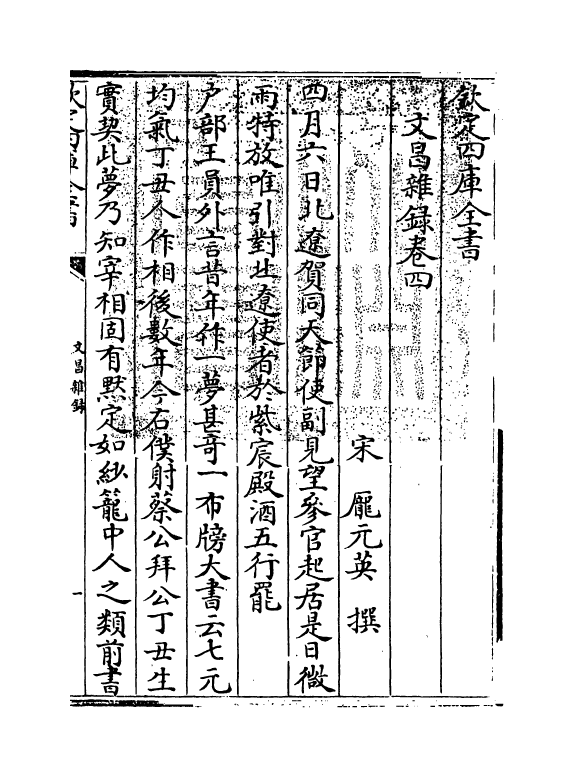 欽定四庫全書
文昌雜錄卷四
宋 龎元英 撰
四月六日北遼賀同天節使副見望參官起居是日微
雨特放唯引對北遼使者於紫宸殿酒五行罷
户部王員外言昔年作一夢甚竒一布牓大書云七元
均氣丁丑人作相後數年今右僕射蔡公拜公丁丑生
實契此夢乃知宰相固有黙定如紗籠中人之類前書
文昌雜録
一